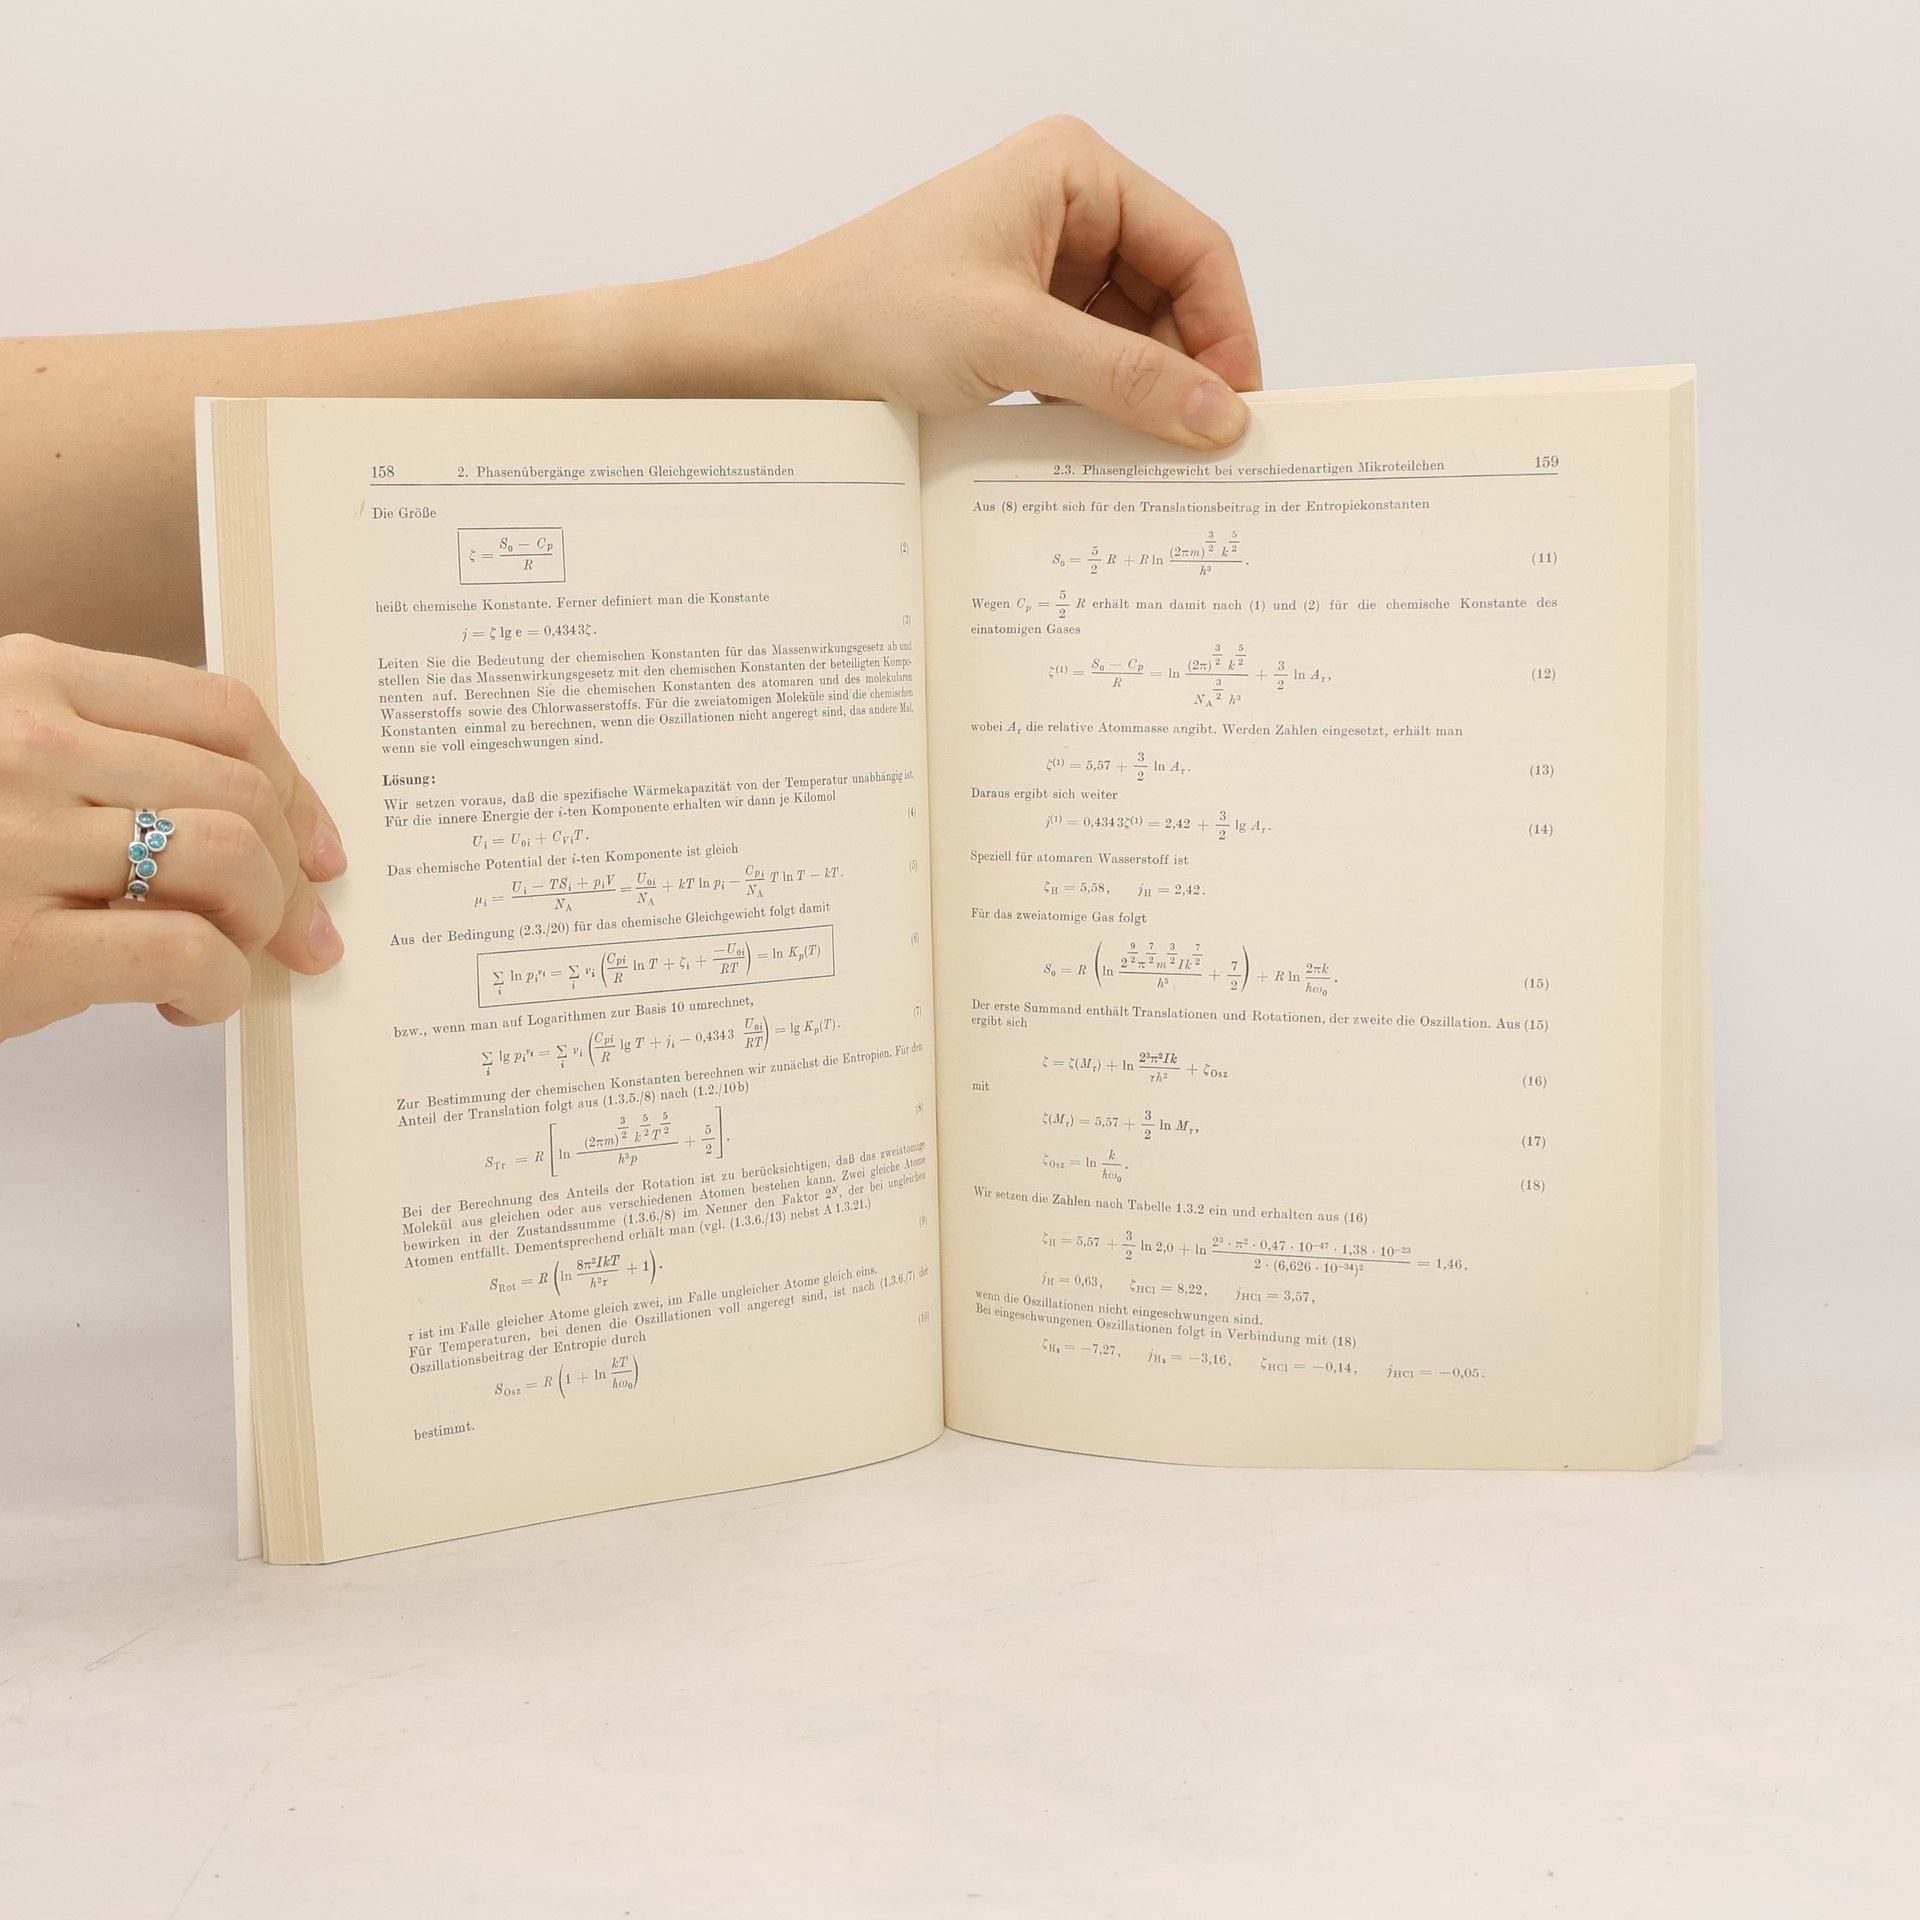 158 2. Phasenübergänge zwischen Gleichgewichtszuständen
Die Größe
ζ = (S₀ − C_p)/R (2)
heißt chemische Konstante. Ferner definiert man die Konstante
j = ζ lg e = 0,4343ζ. (3)
Leiten Sie die Bedeutung der chemischen Konstanten für das Massenwirkungsgesetz ab und
stellen Sie das Massenwirkungsgesetz mit den chemischen Konstanten der beteiligten Kompo-
nenten auf. Berechnen Sie die chemischen Konstanten des atomaren und des molekularen
Wasserstoffs sowie des Chlorwasserstoffs. Für die zweiatomigen Moleküle sind die chemischen
Konstanten einmal zu berechnen, wenn die Oszillationen nicht angeregt sind, das andere Mal,
wenn sie voll eingeschwungen sind.
Lösung:
Wir setzen voraus, daß die spezifische Wärmekapazität von der Temperatur unabhängig ist.
Für die innere Energie der i-ten Komponente erhalten wir dann je Kilomol
U_i = U_0i + C_Vi T. (4)
Das chemische Potential der i-ten Komponente ist gleich
μ_i = (U_i − TS_i + p_iV)/N_A = U_0i/N_A + kT ln p_i − (C_pi/N_A) T ln T − kT. (5)
Aus der Bedingung (2.3./20) für das chemische Gleichgewicht folgt damit
∑_i ln p_i^ν_i = ∑_i ν_i (C_pi/R ln T + ζ_i + −U_0i/RT) = ln K_p(T) (6)
bzw., wenn man auf Logarithmen zur Basis 10 umrechnet,
∑_i lg p_i^ν_i = ∑_i ν_i (C_pi/R lg T + j_i − 0,4343 U_0i/RT) = lg K_p(T). (7)
Zur Bestimmung der chemischen Konstanten berechnen wir zunächst die Entropien. Für den
Anteil der Translation folgt aus (1.3.5./8) nach (1.2./10b)
S_Tr = R [ln ((2πm)^(3/2) k^(5/2) T^(5/2))/(h³p) + 5/2]. (8)
Bei der Berechnung des Anteils der Rotation ist zu berücksichtigen, daß das zweiatomige
Molekül aus gleichen oder aus verschiedenen Atomen bestehen kann. Zwei gleiche Atome
bewirken in der Zustandssumme (1.3.6./8) im Nenner den Faktor 2^N, der bei ungleichen
Atomen entfällt. Dementsprechend erhält man (vgl. (1.3.6./13) nebst A 1.3.21.)
S_Rot = R (ln 8π²IkT/h²τ + 1). (9)
τ ist im Falle gleicher Atome gleich zwei, im Falle ungleicher Atome gleich eins.
Für Temperaturen, bei denen die Oszillationen voll angeregt sind, ist nach (1.3.6./7) der
Oszillationsbeitrag der Entropie durch
S_Osz = R (1 + ln kT/ħω₀) (10)
bestimmt.
2.3. Phasengleichgewicht bei verschiedenartigen Mikroteilchen 159
Aus (8) ergibt sich für den Translationsbeitrag in der Entropiekonstanten
S₀ = 5/2 R + R ln ((2πm)^(3/2) k^(5/2))/h³. (11)
Wegen C_p = 5/2 R erhält man damit nach (1) und (2) für die chemische Konstante des
einatomigen Gases
ζ⁽¹⁾ = (S₀ − C_p)/R = ln ((2π)^(3/2) k^(5/2))/(N_A^(3/2) h³) + 3/2 ln A_r, (12)
wobei A_r die relative Atommasse angibt. Werden Zahlen eingesetzt, erhält man
ζ⁽¹⁾ = 5,57 + 3/2 ln A_r. (13)
Daraus ergibt sich weiter
j⁽¹⁾ = 0,4343ζ⁽¹⁾ = 2,42 + 3/2 lg A_r. (14)
Speziell für atomaren Wasserstoff ist
ζ_H = 5,58, j_H = 2,42.
Für das zweiatomige Gas folgt
S₀ = R (ln (2^(9/2) π^(7/2) m^(3/2) I k^(7/2))/h⁵ + 7/2) + R ln 2πk/ħω₀. (15)
Der erste Summand enthält Translationen und Rotationen, der zweite die Oszillation. Aus (15)
ergibt sich
ζ = ζ(M_r) + ln 2³π²Ik/τh² + ζ_Osz (16)
mit
ζ(M_r) = 5,57 + 3/2 ln M_r, (17)
ζ_Osz = ln k/ħω₀. (18)
Wir setzen die Zahlen nach Tabelle 1.3.2 ein und erhalten aus (16)
ζ_H = 5,57 + 3/2 ln 2,0 + ln (2³ · π² · 0,47 · 10⁻⁴⁷ · 1,38 · 10⁻²³)/(2 · (6,626 · 10⁻³⁴)²) = 1,46,
j_H = 0,63, ζ_HCl = 8,22, j_HCl = 3,57,
wenn die Oszillationen nicht eingeschwungen sind.
Bei eingeschwungenen Oszillationen folgt in Verbindung mit (18)
ζ_H₂ = −7,27, j_H₂ = −3,16, ζ_HCl = −0,14, j_HCl = −0,05.